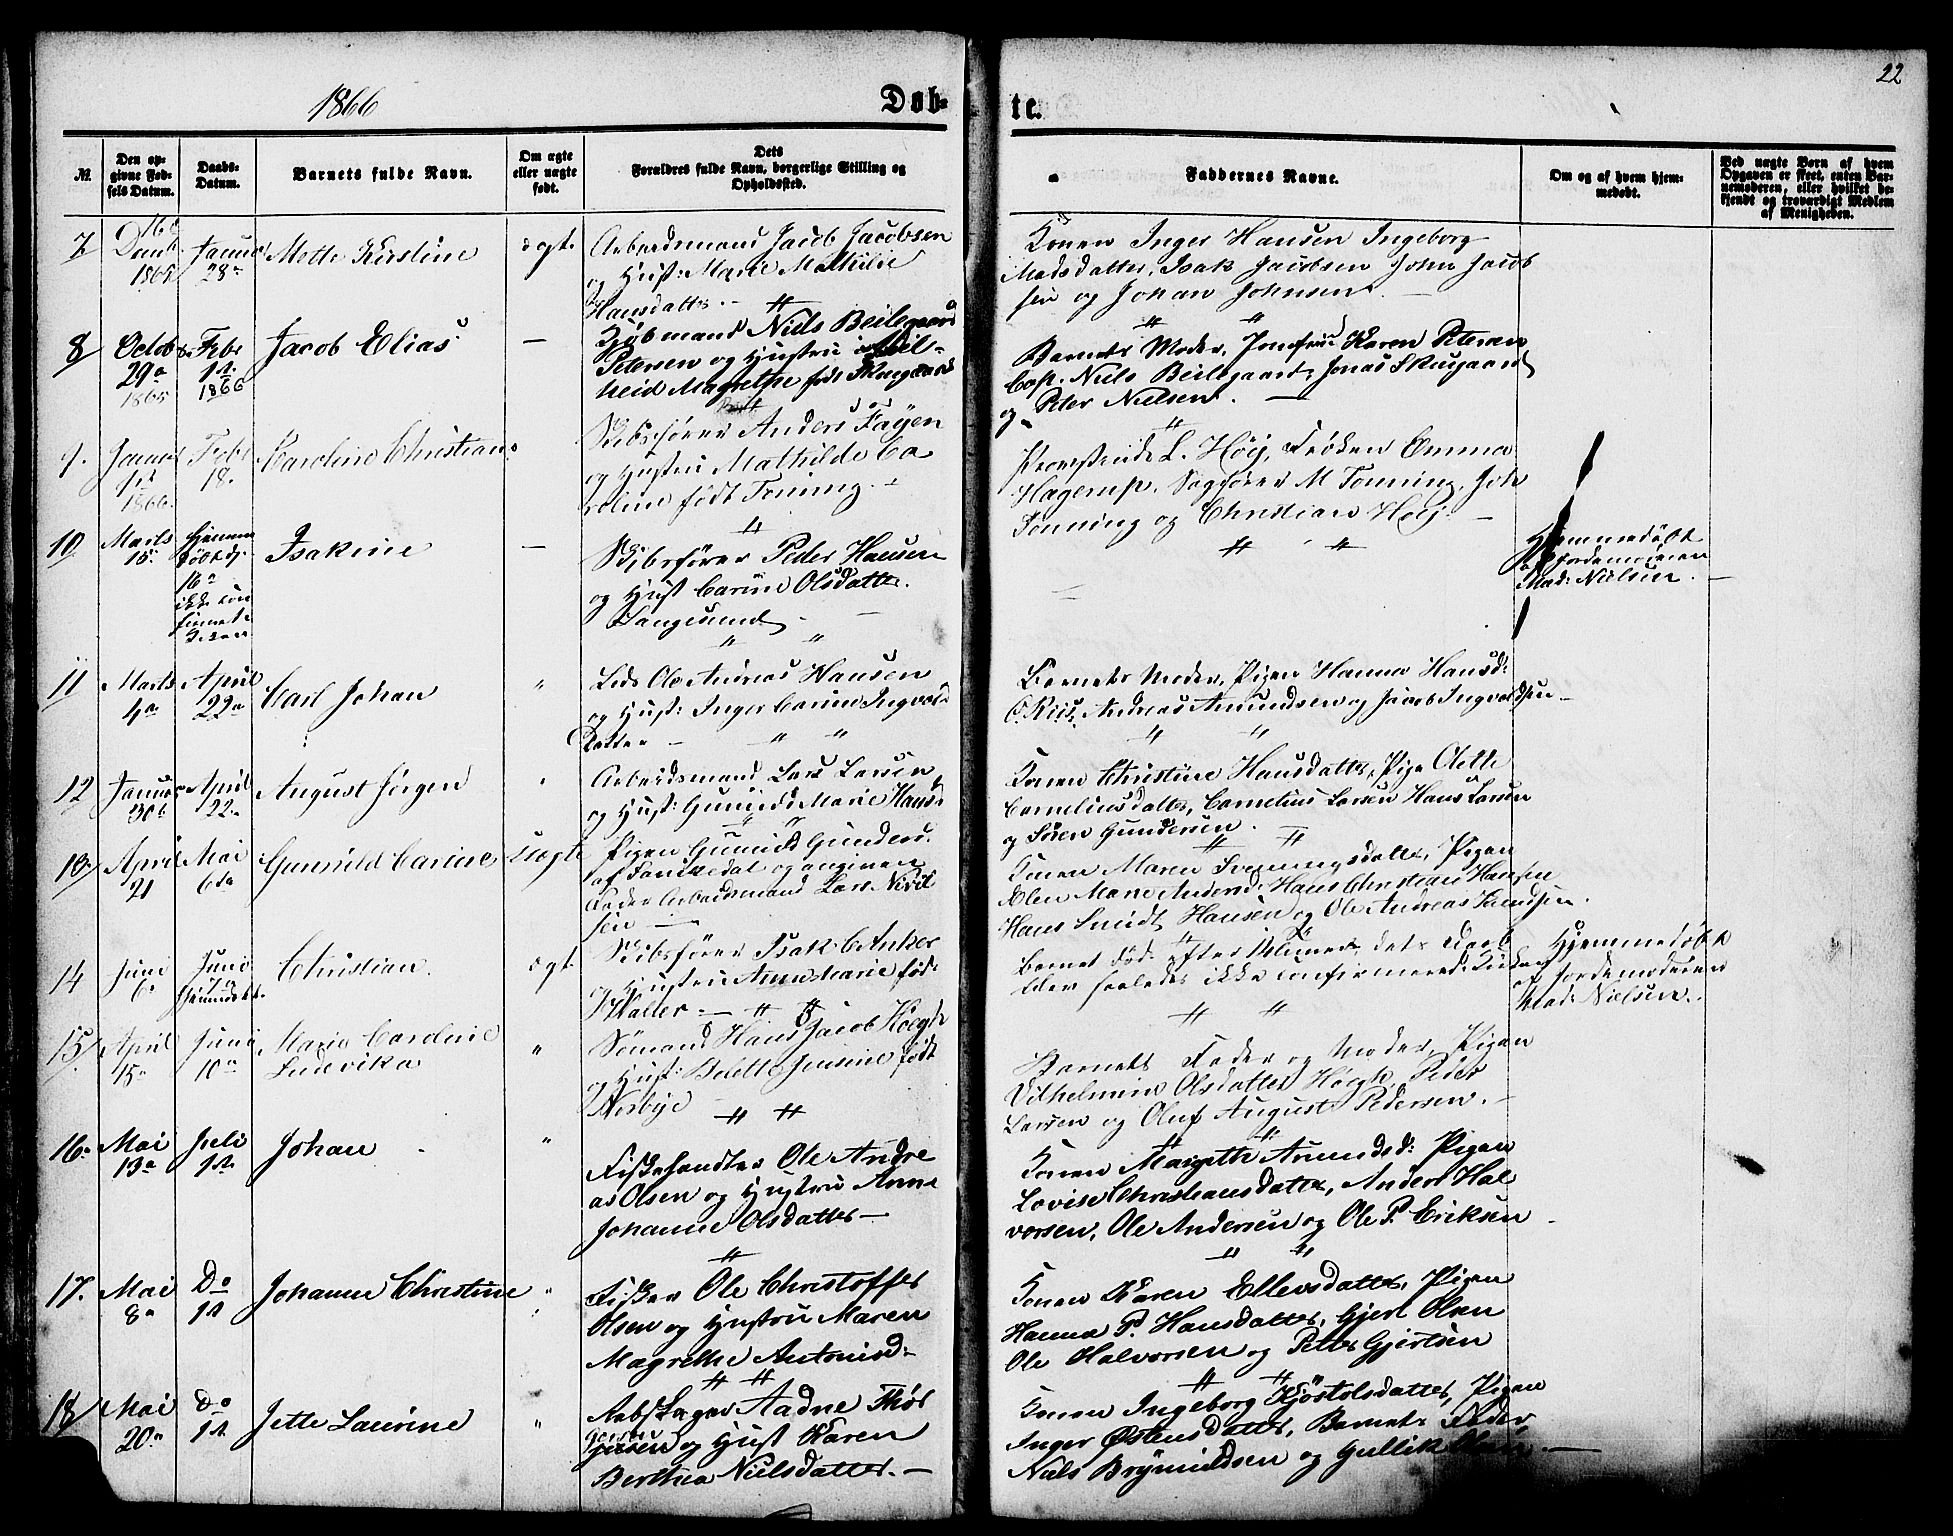 1866
Døb-
te.
22
№
Den op-
givne Fød-
sels Datum.
Daabs-
Datum.
Barnets fulde Navn.
Om ægte
eller uægte
født.
Dets
Forældres fulde Navn, borgerlige Stilling og
Opholdssted.
Faddernes Navne.
Om og af hvem hjem-
medøbt.
Ved uægte Børn af hvem
Opgaven er skeet, enten Bar-
nemoderen, eller hvilket be-
kjendt og troværdigt Medlem
af Menigheden.
7
16
1865
Januar
28
Mette Kirstine
ægt.
Arbeidsmand Jacob Jacobsen
og Hust: Marie Mathilde
Hansdatter. -
Konen Inger Hansen Ingeborg
Madsdatter, Isak Jacobsen John Jacob
sen og Johan Johnsen. -
8
Octob
29
1865
Febr
1st.
1866
Jacob Elias
-
Kjøbmand Niels Beilegaard
Petersen og Hustru
Magrethe født Skougaard
Barnets Moder, Jomfru Karen Petersen
Cap. Niels Beilegaard, Jonas Skougaard
og Peter Nielsen. -
9.
Januar
1st
1866.
Febr
18.
Caroline Christian:
Skibsfører Anders Føyen
og Hustru Mathilde Ca-
roline født Tonning. -
L. Høeg, Frøken Emma
Hagerup. Sagfører M Tonning, Joh
Tonning og Christian Høeg. -
10
Marts
15
Hjemme
døbt d.
16
ikke con
firmeret i
Kirken
Isakine
-
Skibsfører Peder Hansen
og Hust Carine Olsdatter.
Langesund. -
Hjemmedøbt
af Jordemoderen
Mad: Nielsen. -
11
Marts
4
April
22
Carl Johan
"
Lods Ole Andreas Hansen
og Hust: Inger Carine Ingvald
datter -
Barnets Moder, Pigen Hanna Hansd:
O. Riis, Andreas Amundsen og Jacob Ingvaldsen -
12
Januar
30
April
22
August Jørgen
"
Arbeidsmand Lars Larsen
og Hust: Gunild Marie Hansd:
Konen Christine Hansdatter, Pige Olette
Corneliusdatter, Cornelius Larsen Hans Larsen
og Søren Gundersen.
13
April
21
Mai
6te
Gunnild Carine
Uægte
Pigen Gunnild Gundersd.
af Tonskedal og angiven
Fader Arbeidsmand Lars Niril
sen -
Konen Maren Svenningsdatter, Pigen
Elen Marie Andersd, Hans Christian Hansen
Hans Smidt Hansen og Ole Andreas Knudsen.
14
Juni
6
Juni
7
Hjemmedøbt.
Christian.
ægt.
Skibsfører Isak C Anker
og Hustru Anne Marie født
Walter. -
Barnet døde efter 1 Time, dets Daab
blev saaledes ikke confirmeret i Kirken
Hjemmedøbt
af Jordemoderen
Mad: Nielsen.
15
April
15
Juni
10
Marie Caroline
Ludovika
"
Sømand Hans Jacob Høegh
og Hust: Belette Jensine født
Nesbye -
Barnets Fader og Moder, Pigen
Vilhelmine Olsdatter Høegh, Peder
Larsen og Oluf August Pedersen. -
16.
Mai
13
Juli
1st.
Johan
"
Fiskehandler Ole Andre
as Olsen og Hustru Anne
Johanne Olsdatter -
Konen Margethe Amundsd: Pigen
Lovise Christiansdatter, Anders Hal
vorsen, Ole Andersen og Ole P. Eriksen -
17.
Mai
8
Do
1st
Johanne Christine
"
Fisker Ole Christoffer
Olsen og Hustru Maren
Magrethe Antonisd:
Konen Karen Ellevsdatter, Pigen
Hanna P. Hansdatter, Gjert Olsen
Ole Halvorsen og Petter Gjertsen
18
Mai
20
Do
1st.
Jette Laurine
"
Aadne Thor
gersen og Hust Karen
Berthea Nielsdatter. -
Konen Ingeborg Kjøstolsdatter, Pigen
Inger Østensdatter, Barnets Fader
Niels Brynnildsen og Gullik Olsen -